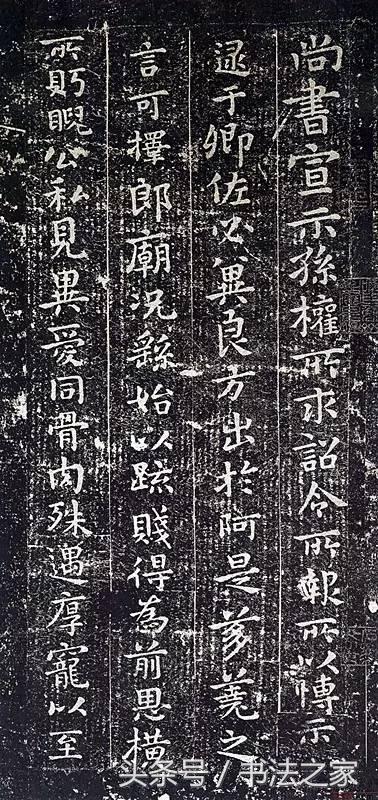 尚書宣示孫權所求詔令所報所以博示
逮于卿佐必冀良方出於阿是芻蕘之
言可擇郎廟況繇始以疏賤得為前恩橫
所盻睨公私見異愛同骨肉殊遇厚寵以至
头条号/书法之家